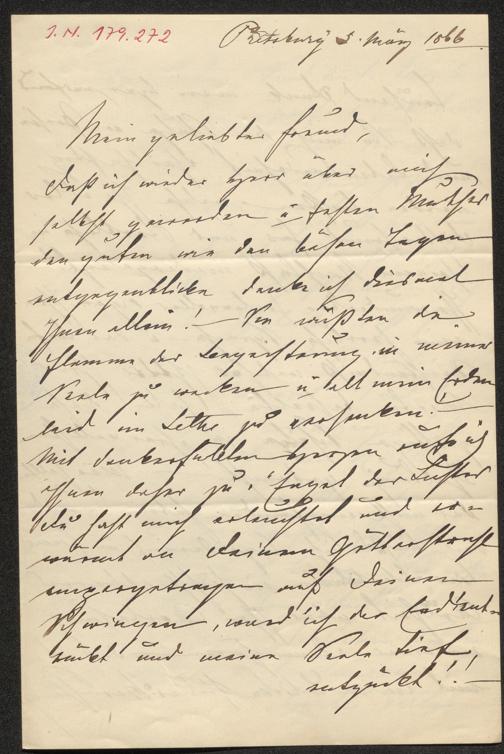 J.N. 179.272
Pressburg 3. März 1866.
Mein geliebter Freund,
Daß ich wieder Herr über mich
selbst geworden u festen Muthes
den guten wie den bösen Tagen
entgegenblicke danke ich diesmal
Ihnen allein! – Sie wüßten die
Flamme der Begeisterung in meiner
Seele zu wecken u all mein Erden
leid im Lethe zu versenken. –
Mit dankerfülltem Herzen rufe ich
Ihnen daher zu: "Engel des Lichtes
Du hast mich erleuchtet und er=
wärmt an Deinem Götterstrahl
emporgetragen auf Deinen
Schwingen, ward ich der Erd' ent=
rückt und meine Seele tief
entzückt!! –